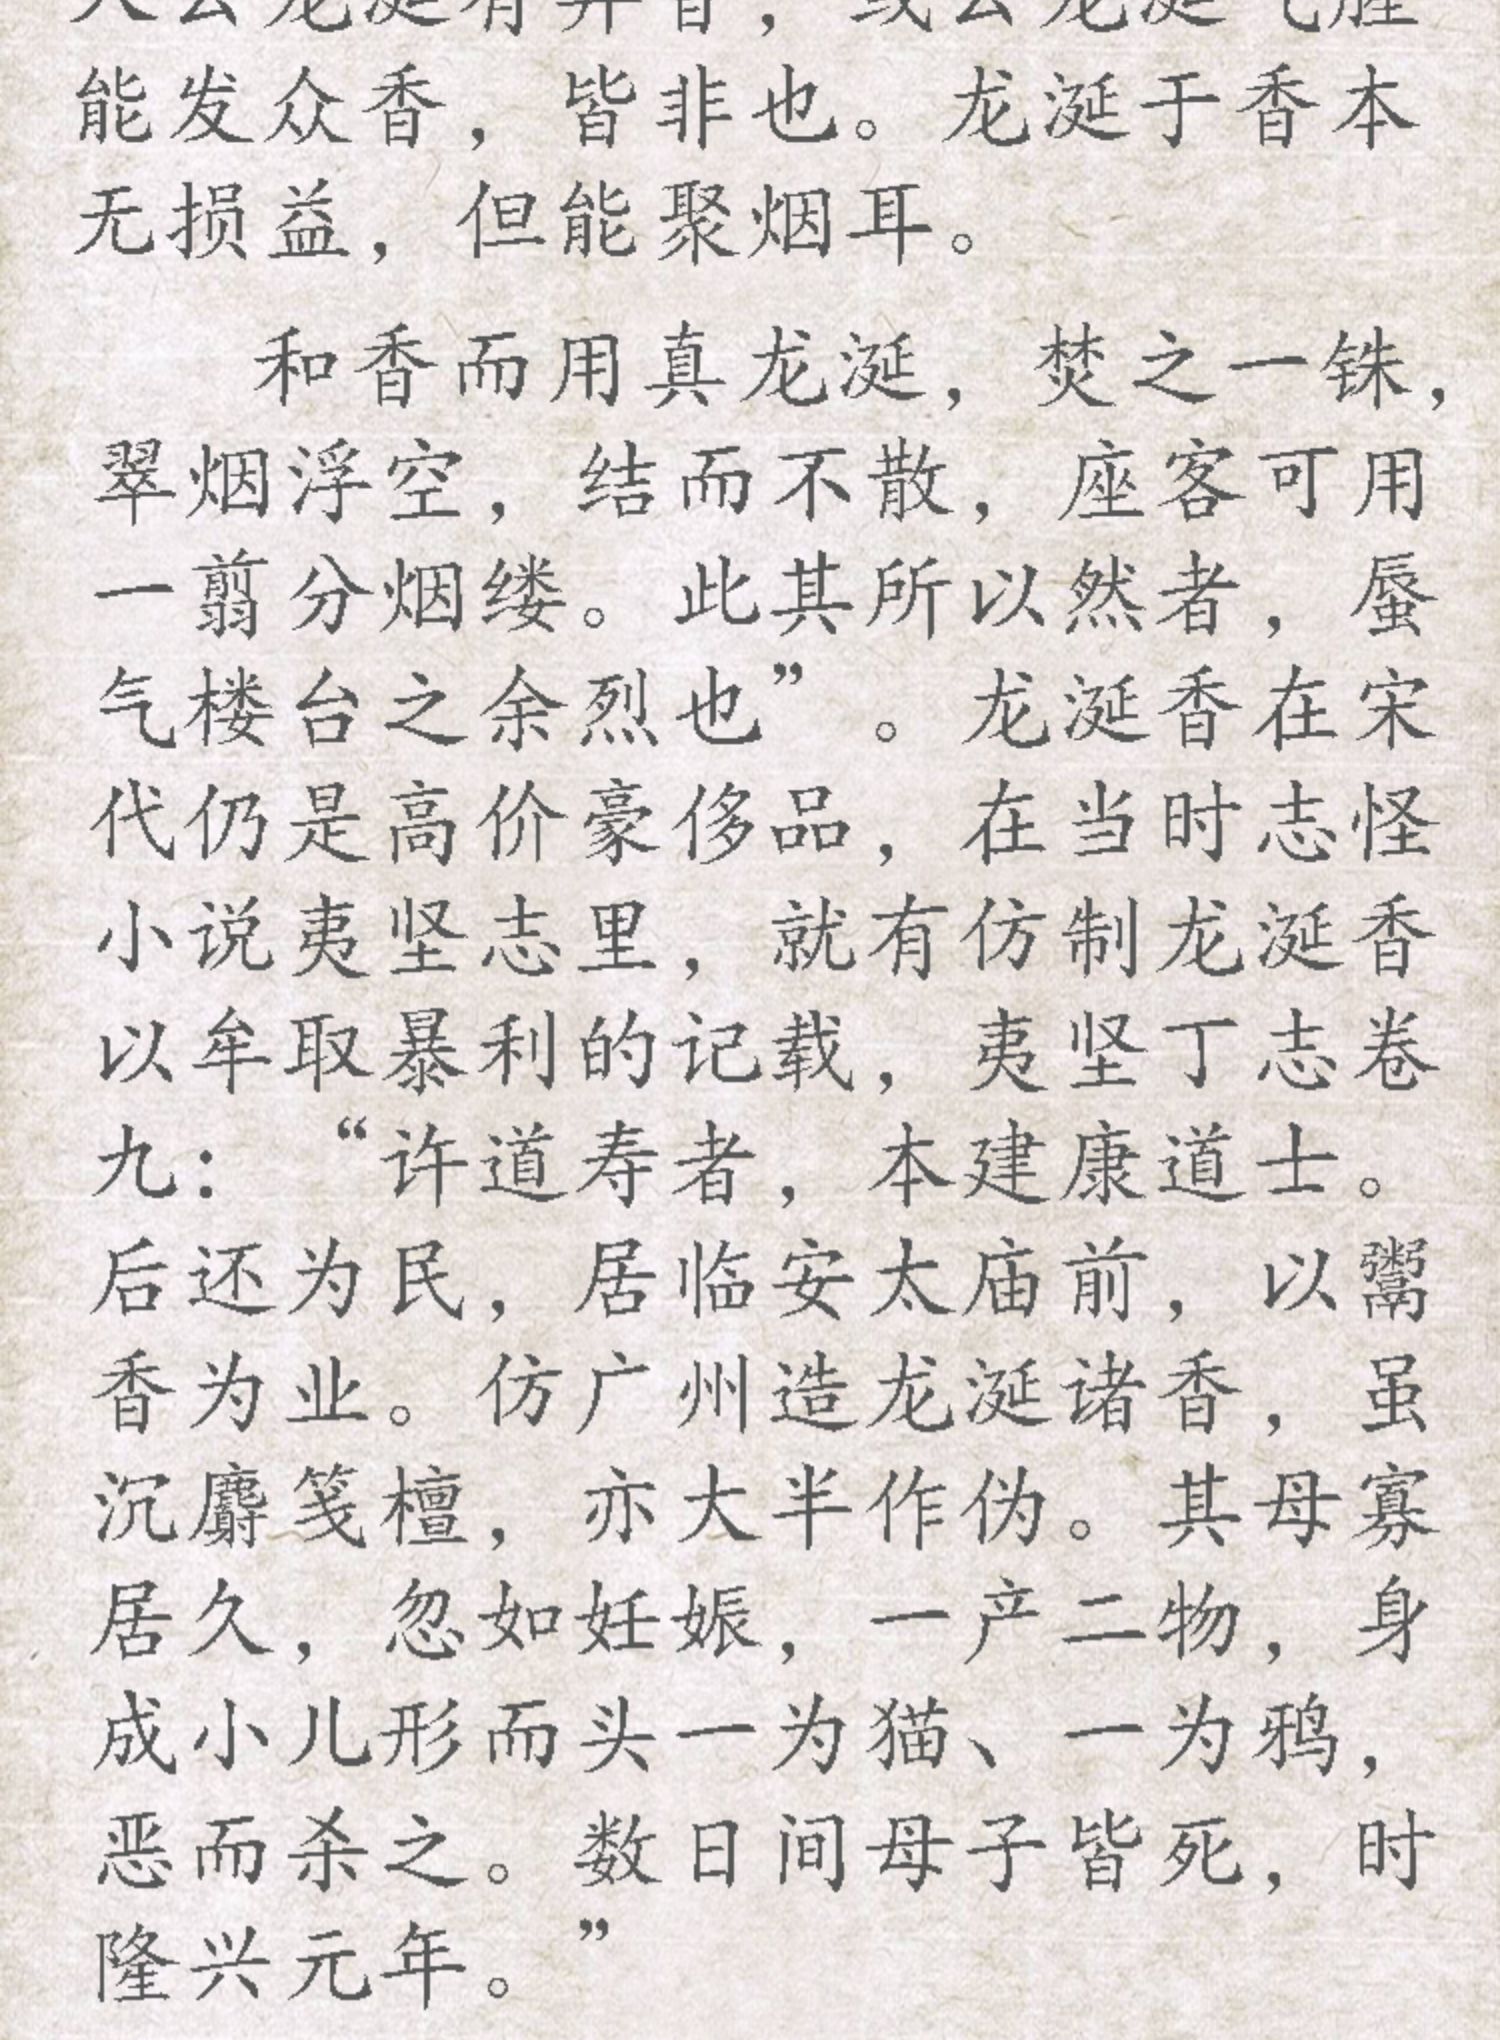 人云龙涎有异香，或云龙涎气腥
能发众香，皆非也。龙涎于香本
无损益，但能聚烟耳。
和香而用真龙涎，焚之一铢，
翠烟浮空，结而不散，座客可用
一翦分烟缕。此其所以然者，蜃
气楼台之余烈也”。龙涎香在宋
代仍是高价豪侈品，在当时志怪
小说夷坚志里，就有仿制龙涎香
以牟取暴利的记载，夷坚丁志卷
九：“许道寿者，本建康道士。
后还为民，居临安太庙前，以鬻
香为业。仿广州造龙涎诸香，虽
沉麝笺檀，亦大半作伪。其母寡
居久，忽如妊娠，一产二物，身
成小儿形而头一为猫、一为鸦，
恶而杀之。数日间母子皆死，时
隆兴元年。”